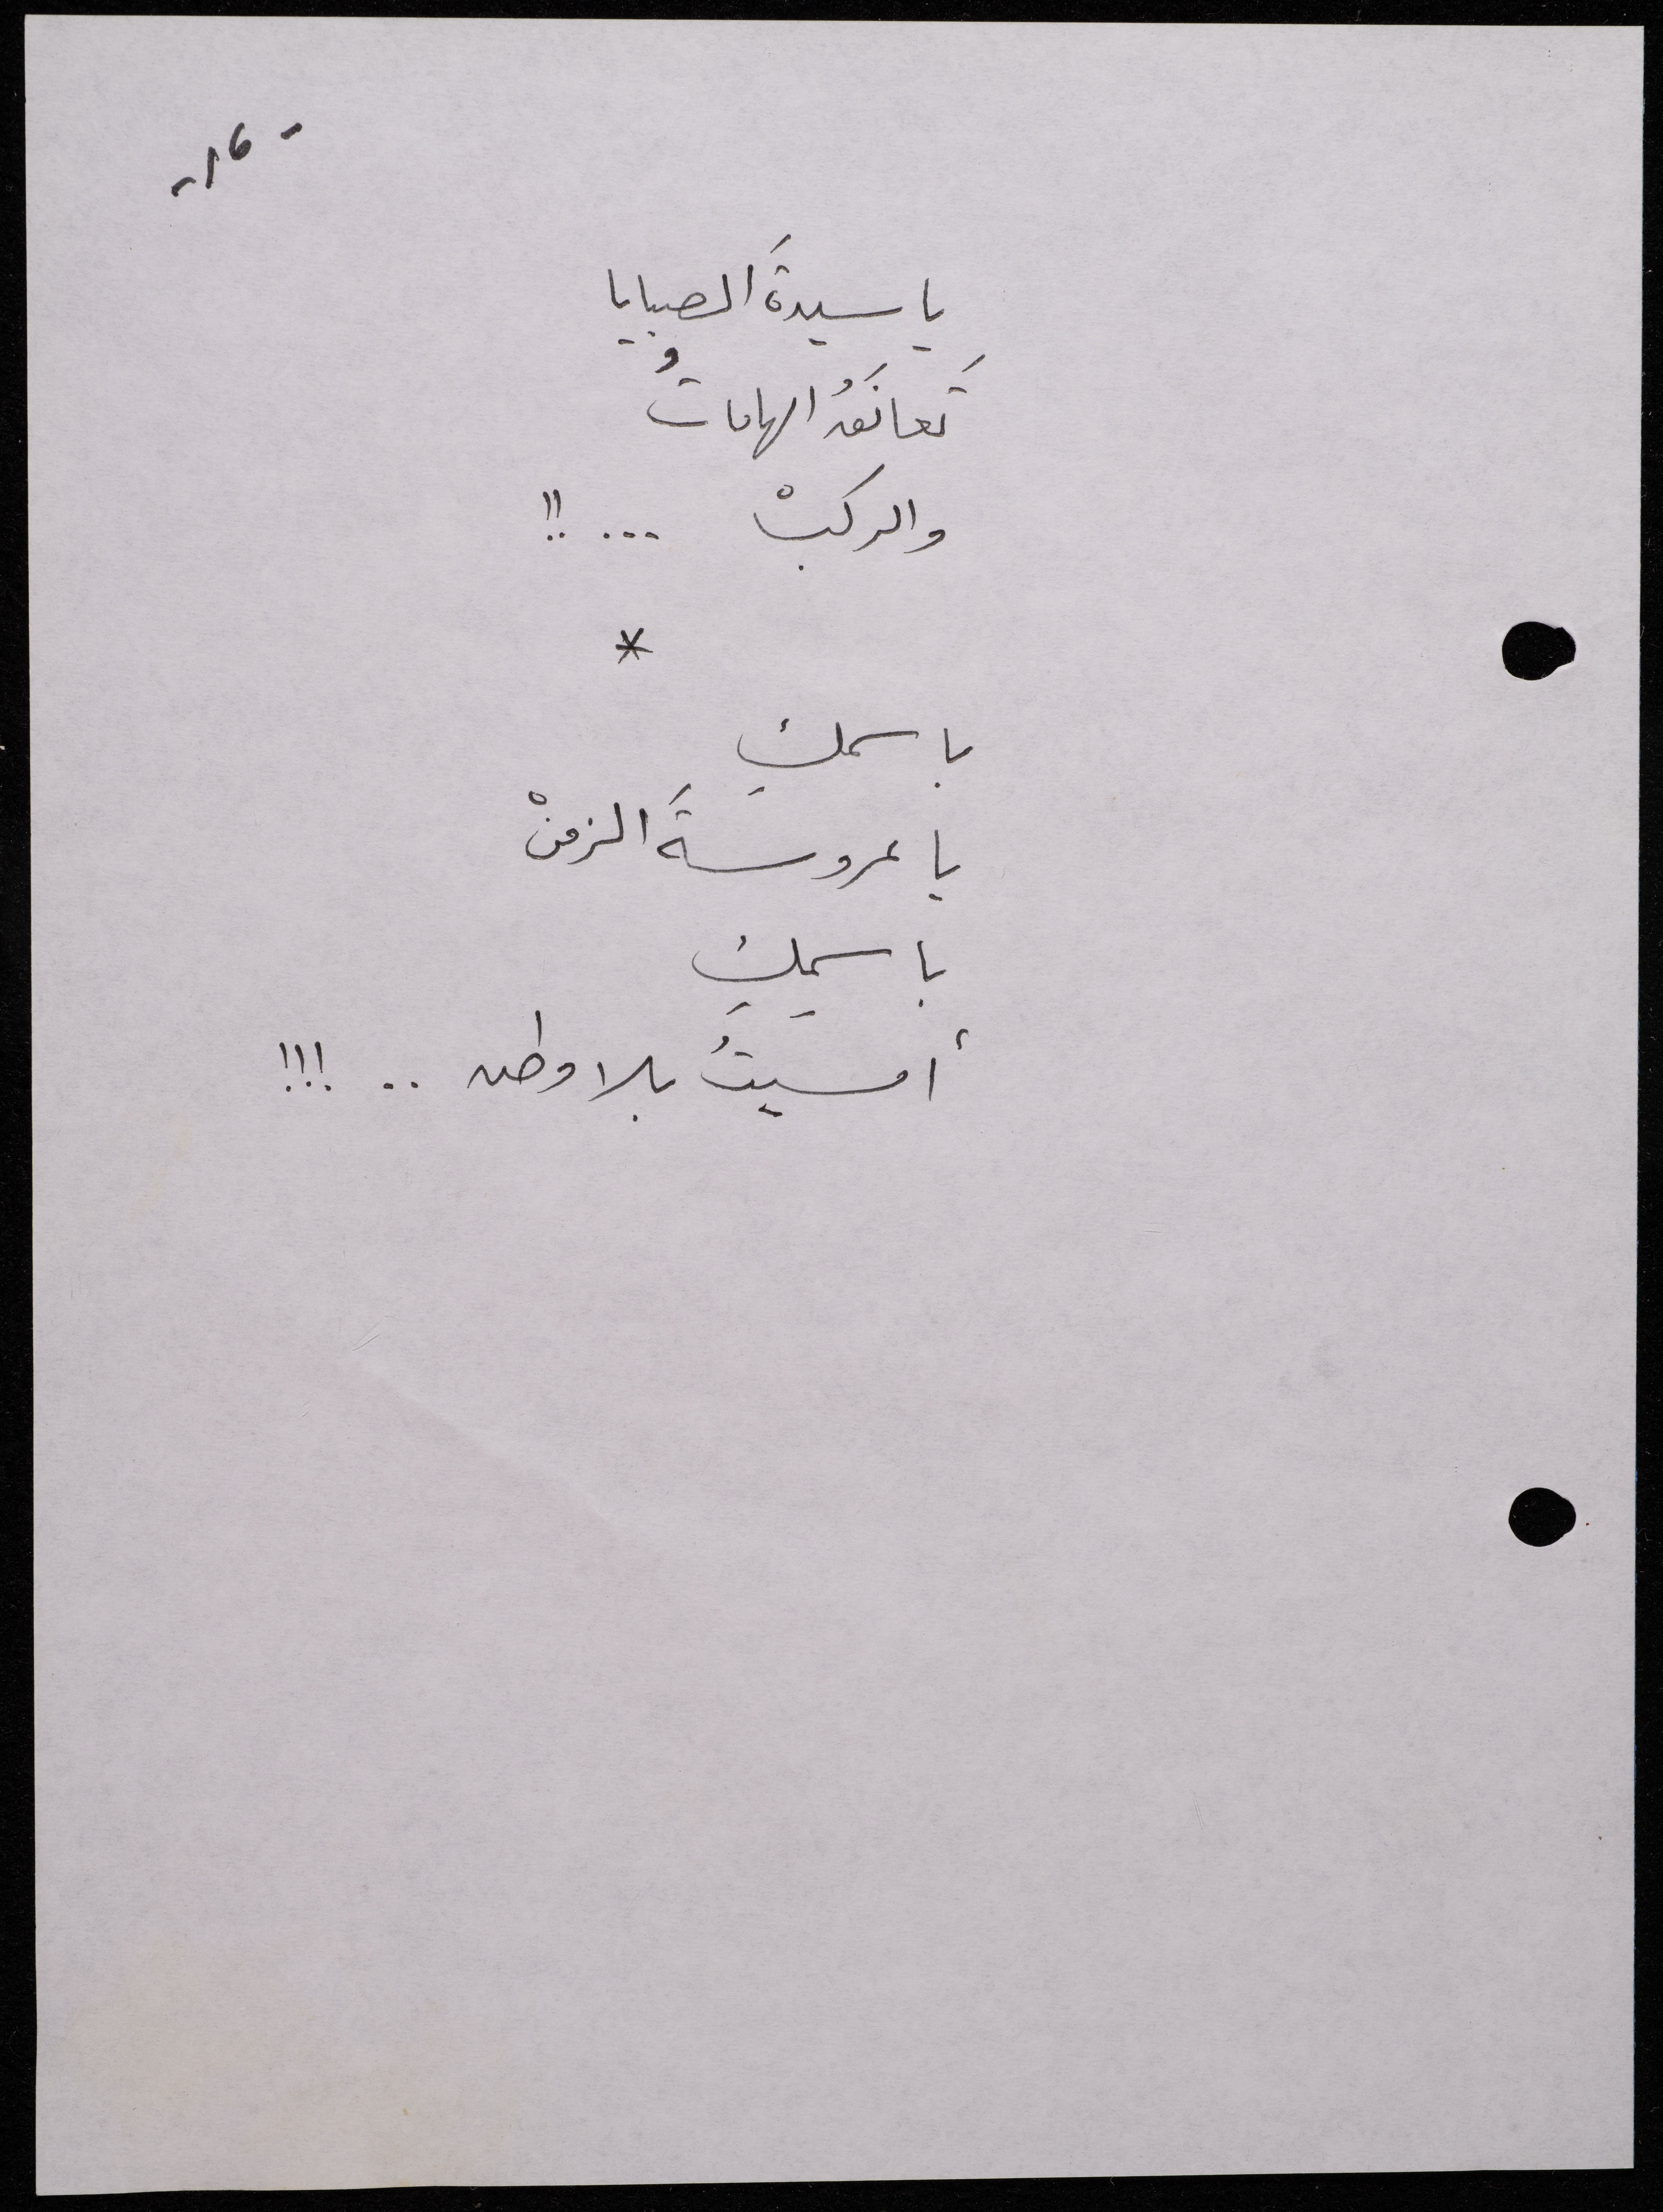 -16-
يا سيدةَ الصبايا
تَعانَقَتُ الهاماتُ
والركبْ ... !!
*
باسمكِ
يا عروسةَ الزمنْ
باسمِكِ
أمسيتُ بلا وطن .. !!!